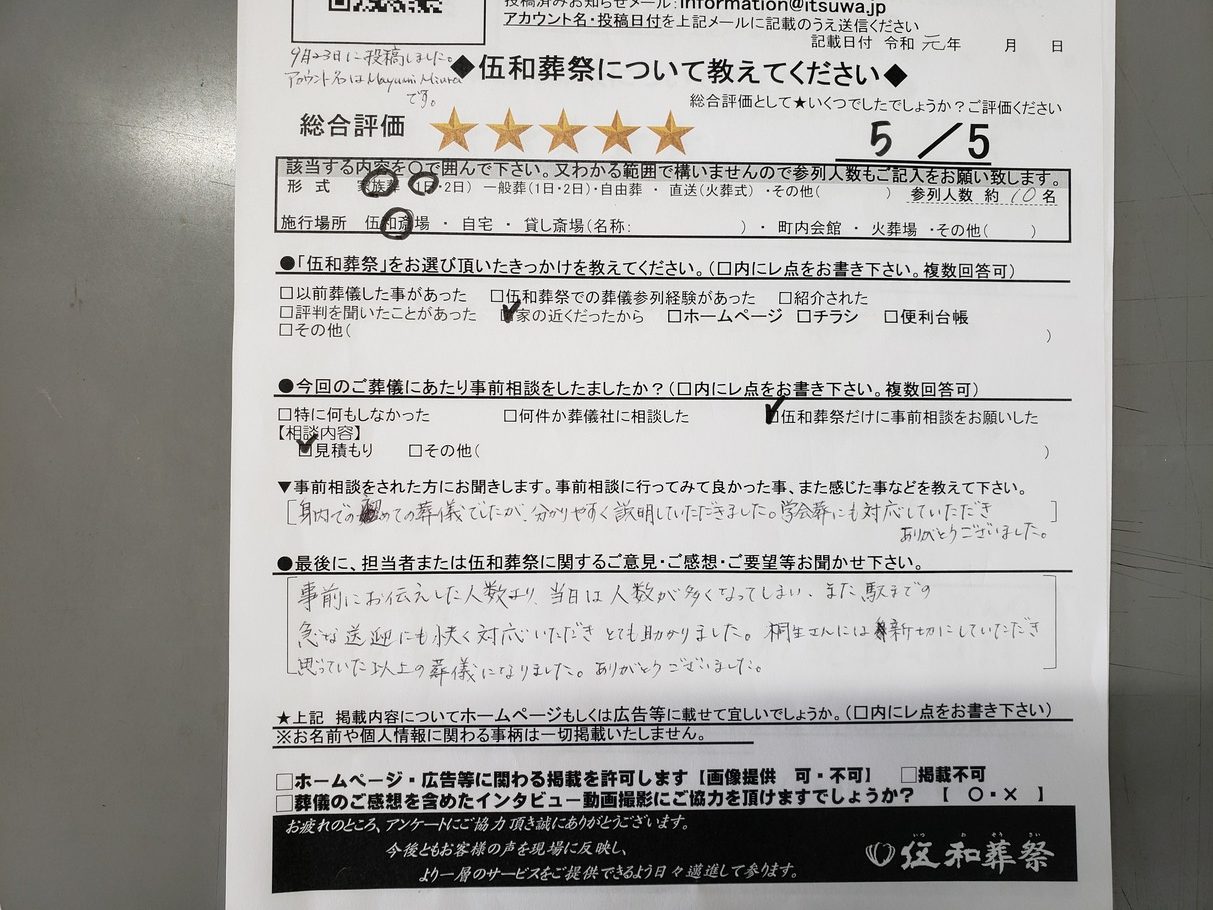 投稿済みお知らせメール:information@itsuwa.jp
アカウント名・投稿日付を上記メールに記載のうえ送信ください
記載日付 令和 元年 月 日
9月23日に投稿しました。
アカウント名はMayumi Miura
です。
◆伍和葬祭について教えてください◆
総合評価として★いくつでしたでしょうか?ご評価ください
総合評価 5 /5
該当する内容を〇で囲んで下さい。又わかる範囲で構いませんので参列人数もご記入をお願い致します。
形 式 家族葬 (1日・2日) 一般葬(1日・2日)・自由葬 ・ 直送(火葬式) ・その他( ) 参列人数 約 10 名
施行場所 伍和斎場 ・ 自宅 ・ 貸し斎場(名称: ) ・ 町内会館 ・ 火葬場 ・その他( )
●「伍和葬祭」をお選び頂いたきっかけを教えてください。(□内にレ点をお書き下さい。複数回答可)
□以前葬儀した事があった □伍和葬祭での葬儀参列経験があった □紹介された
□評判を聞いたことがあった ☑家の近くだったから □ホームページ □チラシ □便利台帳
□その他( )
●今回のご葬儀にあたり事前相談をしたましたか?(□内にレ点をお書き下さい。複数回答可)
□特に何もしなかった □何件か葬儀社に相談した ☑伍和葬祭だけに事前相談をお願いした
【相談内容】
☑見積もり □その他( )
▼事前相談をされた方にお聞きします。事前相談に行ってみて良かった事、また感じた事などを教えて下さい。
[身内での初めての葬儀でしたが、分かりやすく説明していただきました。学会葬にも対応していただき]
ありがとうございました。
●最後に、担当者または伍和葬祭に関するご意見・ご感想・ご要望等お聞かせ下さい。
事前にお伝えした人数より、当日は人数が多くなってしまい、また駅までの
急な送迎にも快く対応いただきとても助かりました。桐生さんには親切にしていただき
思っていた以上の葬儀になりました。ありがとうございました。
★上記 掲載内容についてホームページもしくは広告等に載せて宜しいでしょうか。(□内にレ点をお書き下さい)
※お名前や個人情報に関わる事柄は一切掲載いたしません。
□ホームページ・広告等に関わる掲載を許可します【画像提供 可・不可】 □掲載不可
□葬儀のご感想を含めたインタビュー動画撮影にご協力を頂けますでしょうか? 【 〇・× 】
お疲れのところ、アンケートにご協力頂き誠にありがとうございます。
今後ともお客様の声を現場に反映し、
より一層のサービスをご提供できるよう日々邁進して参ります。
いつ わ そう さい
伍和葬祭